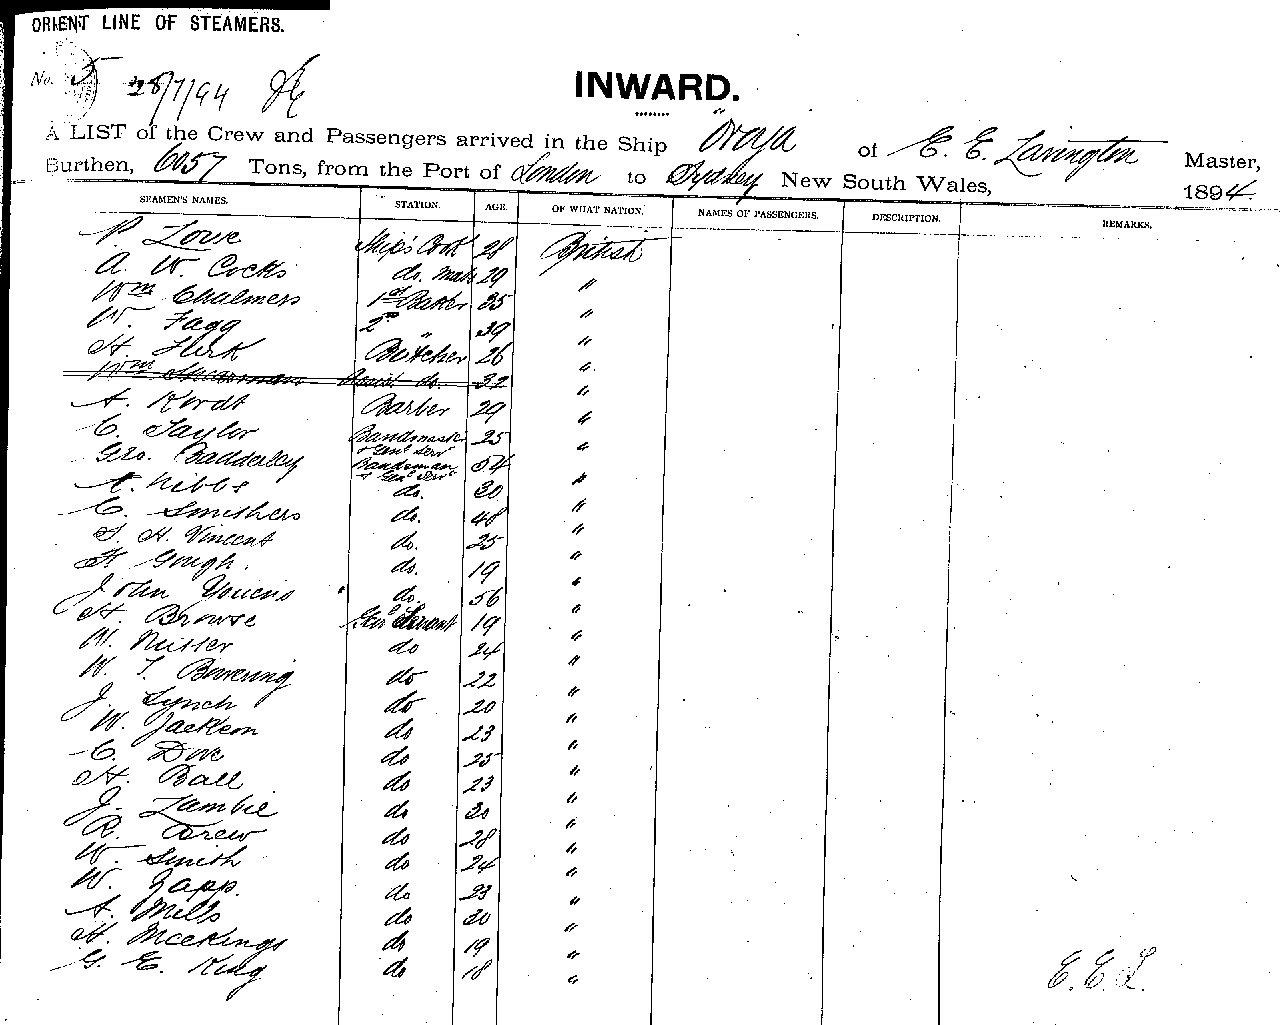 ORIENT LINE OF STEAMERS.
No. 5 28/7/94
INWARD.
A LIST of the Crew and Passengers arrived in the Ship "Oroya of E. E. Lavington Master,
Burthen, 6057 Tons, from the Port of London to Sydney New South Wales, 1894
SEAMEN'S NAMES. STATION. AGE. OF WHAT NATION. NAMES OF PASSENGERS. DESCRIPTION. REMARKS.
P. Lowe Ship's Cook 28 British
A. W. Cocks do. mate 29 "
Wm Chalmers 1st Baker 35 "
W. Fagg 2nd " 39 "
H. Flerk Butcher 26 "
Wm Assist do. 32 "
A. Kordt Barber 29 "
C. Taylor Bandmaster & Genl Serv 25 "
Geo. Badderley Bandsman & Genl Servt 54 "
A. Nibbs do. 30 "
C. Smithers do. 48 "
T. H. Vincent do. 25 "
H. Gough. do. 19 "
John Youens do. 56 "
H. Browse Genl Servant 19 "
W. Nutter do 24 "
W. T. Bowering do 22 "
J. Lynch do 20 "
W. Jackson do 23 "
C. Dove do 25 "
H. Ball do 23 "
J. Lambie do 20 "
R. Carew do 28 "
W. Smith do 24 "
W. Zapp. do 23 "
A. Mills do 20 "
H. Meekings do 19 "
G. E. King do 18 "
E. E. L.